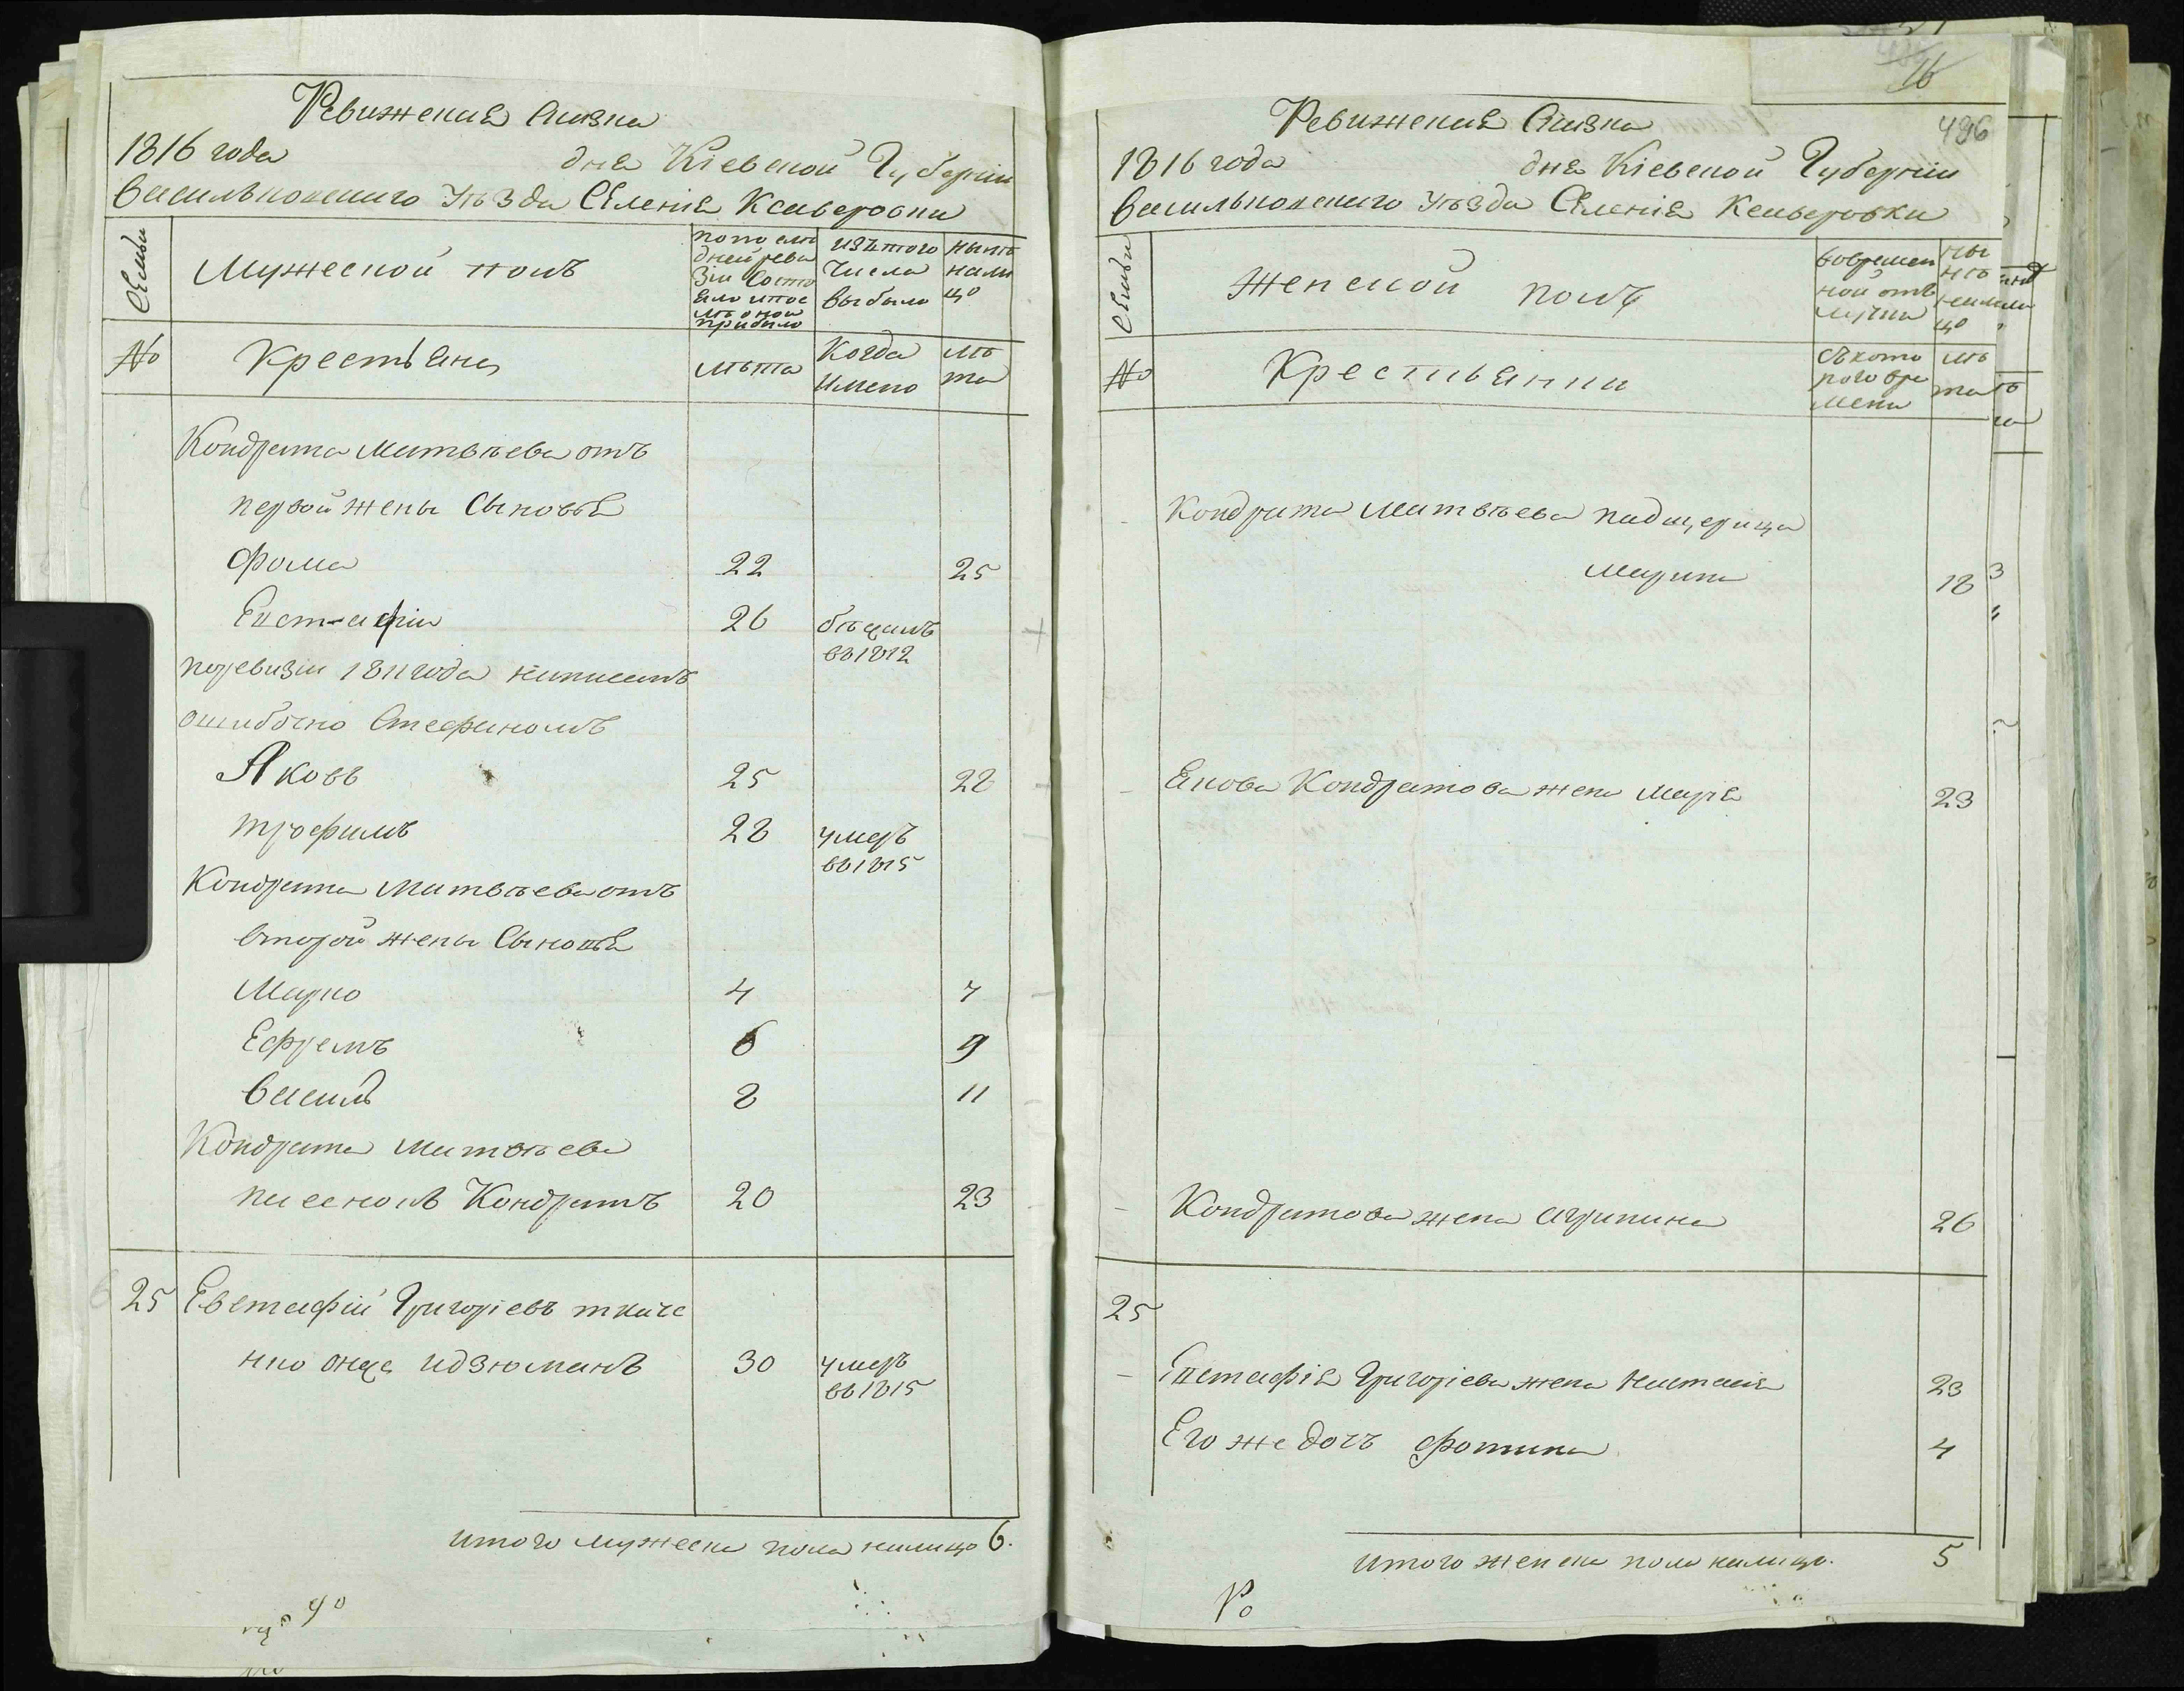 Ревижская Сказка
1816 года дня Кіевской Губерніи
Васильковского Уѣзда Селенія Ксаверовки
Семьи
Мужеской полъ
по по слѣ
дней реви
зіи состо
яло и пос
лѣ оной
прибыло
изъ того
числа
выбыло
нынѣ
нали
цо
№
Крестьяне
лѣта
Когда
имено
лѣ
та
Кондрата Матвѣева отъ
первой жены Сыновья
Фома 22 25
Евстафій 26 бѣжалъ
въ 1812
по ревизіи 1811 года написанъ
ошибочно Стефаномъ
Яковъ 25 28
Трофимъ 28 умеръ
въ 1815
Кондрата Матвѣева отъ
второй жены Сыновья
Марко 4 7
Ефремъ 6 9
Василь 8 11
Кондрата Матвѣева
пасенокъ Кондратъ 20 23
25 Евстафій Григоріевъ ткаче
нко 30 умеръ
въ 1815
итого мужеска пола налицо 6.
16
486
Ревижская Сказка
1816 года дня Кіевской Губерніи
Васильковского Уѣзда Селенія Ксаверовки
Семьи
Женской полъ
во времен
ной отъ
лучки
ны
нѣ
нали
цо
№
Крестьянки
съ кото
рого вре
мени
лѣ
та
Кондрата Матвѣева падщерица
Марина 18
Якова Кондратова жена Марія 23
Кондратова жена Агрипина 26
25
Евстафія Григоріева жена Настасія 23
Его же дочъ Фотина 4
итого женска пола налицо. 5